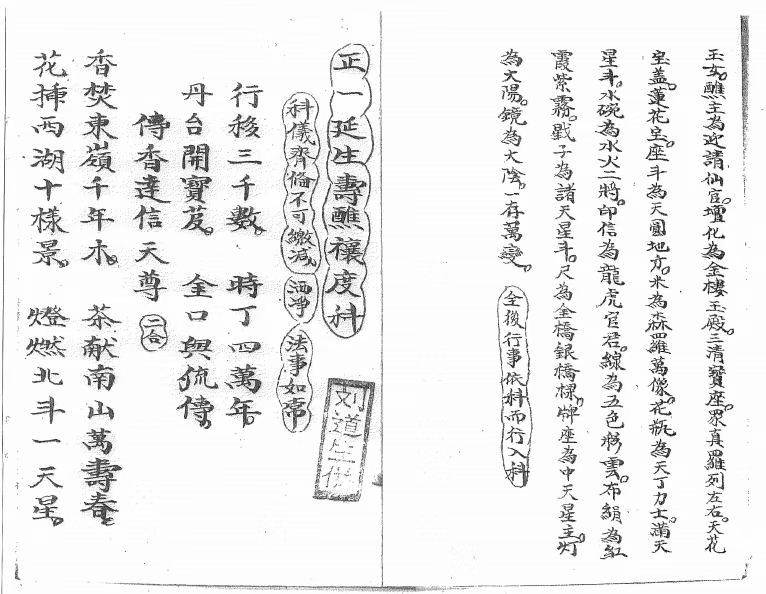 玉女。醮主為迎請仙官。壇化為金樓玉殿。三清寶座。眾真羅列左右。天花
宝盖。蓮花宝座。斗為天圓地方。米為森羅萬像。花瓶為天丁力士。滿天
星斗。水碗為水火二將。印信為龍虎官君。線為五色祥雲。布絹為紅
霞紫霧。戥子為諸天星斗。尺為金橋銀橋樑。牌座為中天星主。灯
為太陽。鏡為太陰。一存萬變。
全後行事依科而行入科
正一延生壽醮禳度科
科儀齊備不可繳減 洒淨 法事如常
行移三千數。 時丁四萬年。
丹台開寶笈。 金口與流傳。
傳香達信天尊 二合
香焚東嶺千年木。 茶献南山萬壽春。
花插西湖十樣景。 燈燃北斗一天星。
刘道生